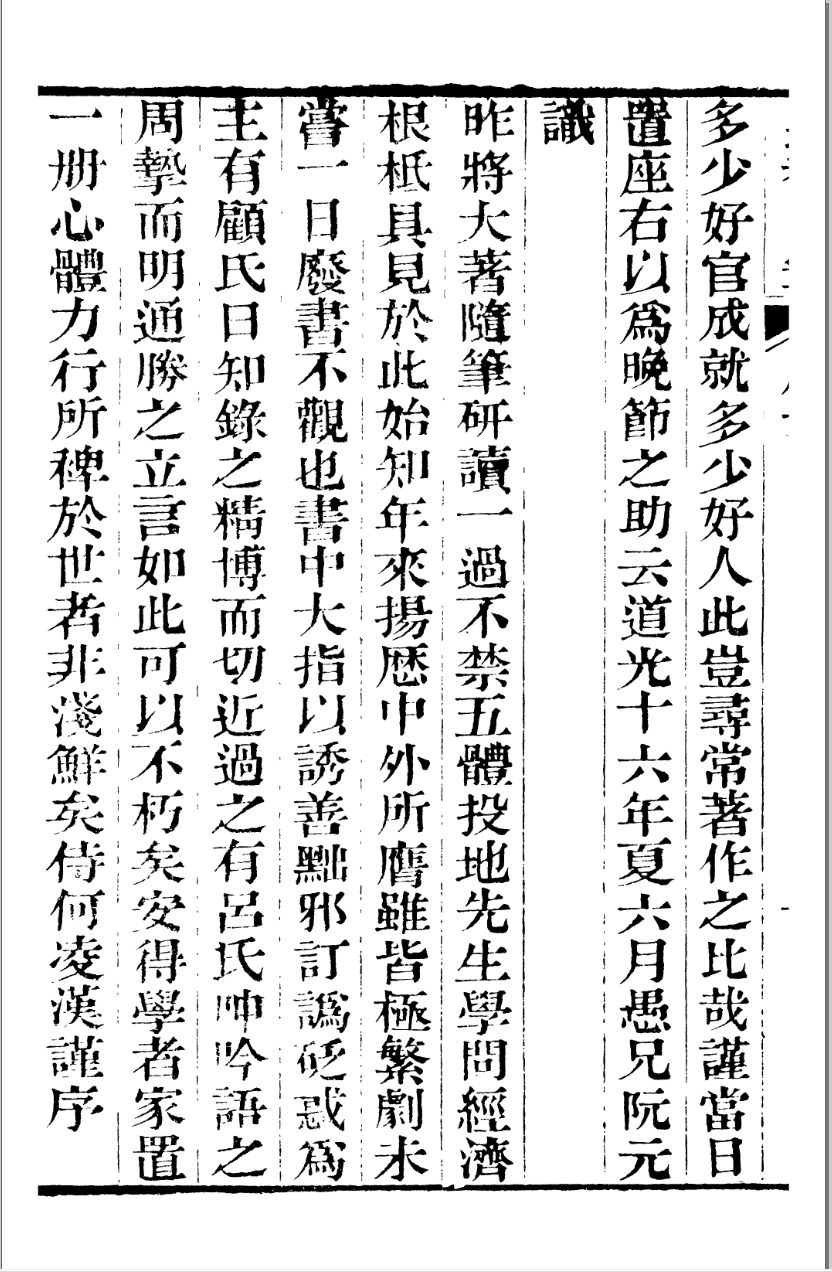 多少好官成就多少好人此豈尋常著作之比哉謹當日
置座右以爲晚節之助云道光十六年夏六月愚兄阮元
識
昨將大著隨筆研讀一過不禁五體投地先生學問經濟
根柢具見於此始知年來揚歷中外所膺雖皆極繁劇未
嘗一日廢書不觀也書中大指以誘善黜邪訂譌砭惑爲
主有顧氏日知錄之精博而切近過之有呂氏呻吟語之
周摯而明通勝之立言如此可以不朽矣安得學者家置
一册心體力行所裨於世者非淺鮮矣侍何凌漢謹序